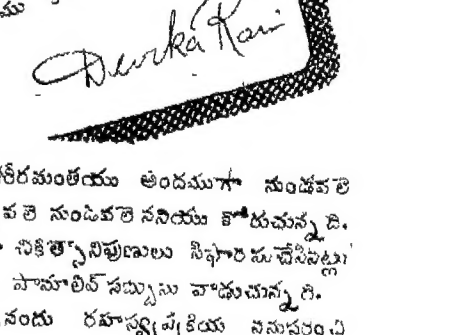 ము
Devika Rani
శరీరమంతయు అందముగా నుండవలె
వలె నుండవలె ననియు కోరుచున్నది.
చికిత్సానిపుణులు సిఫారసుచేసినట్లు
పామాలివ్ సబ్బును వాడుచున్నది.
నందు రహస్య